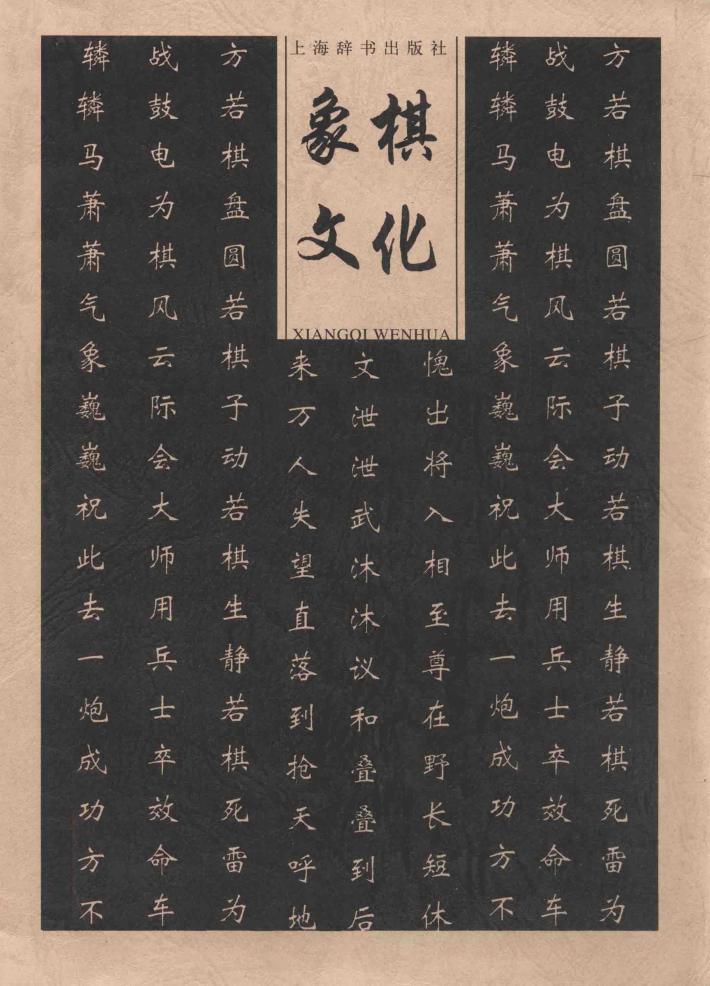 上海辞书出版社
象棋
文化
XIANGQI WENHUA
方若棋盘圆若棋子动若棋生静若棋死雷为
战鼓电为棋风云际会大师用兵士卒效命车
辚辚马萧萧气象巍巍祝此去一炮成功方不
愧出将入相至尊在野长短休
文泄泄武沐沐议和叠叠到后
来万人失望直落到抢天呼地
方若棋盘圆若棋子动若棋生静若棋死雷为
战鼓电为棋风云际会大师用兵士卒效命车
辚辚马萧萧气象巍巍祝此去一炮成功方不